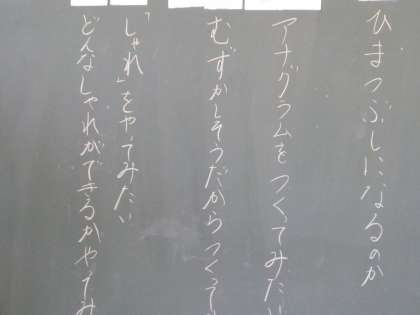 ひまつぶしになるのか
アナグラムをつくってみたい
むずかしそうだからつくって
「しゃれ」をやってみたい
どんなしゃれができるかやってみ